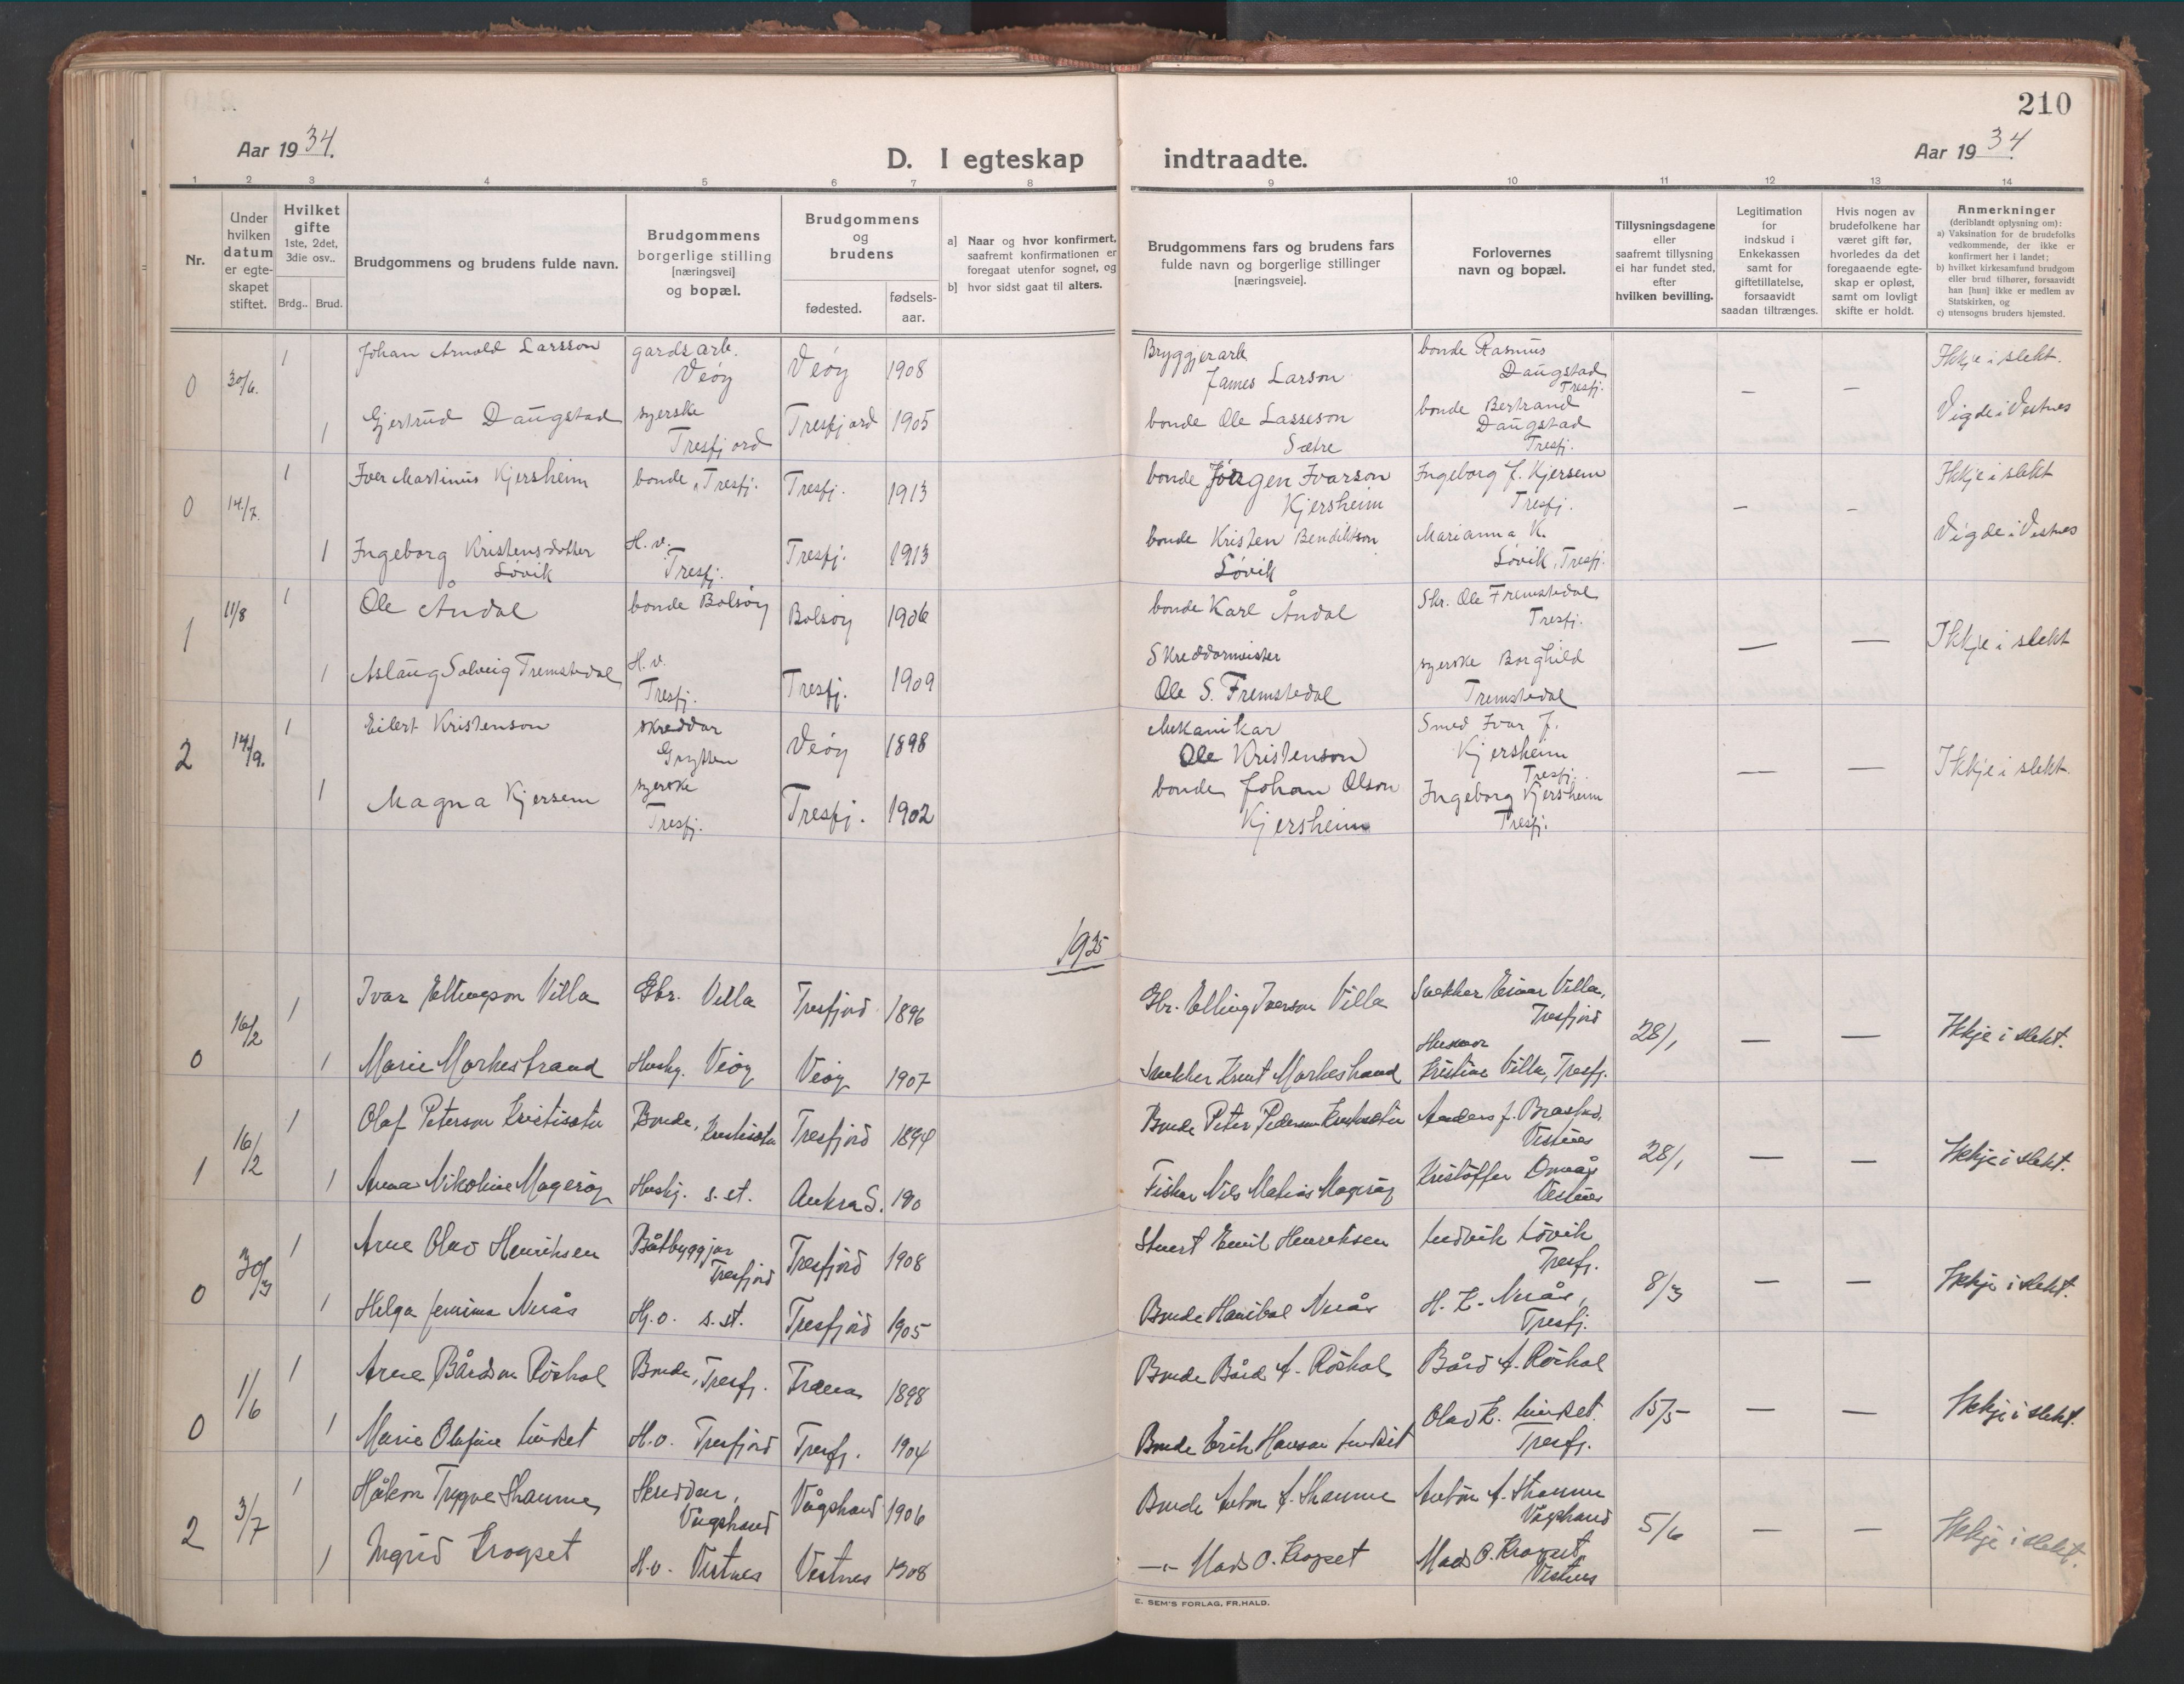 210
Aar 1934.
D. I egteskap indtraadte.
Aar 1934
1 2 3 4 5 6 7 8 9 10 11 12 13 14
Nr.
Under hvilken datum er egte-skapet stiftet.
Hvilket gifte 1ste, 2det, 3die osv..
Brdg.. Brud.
Brudgommens og brudens fulde navn.
Brudgommens borgerlige stilling [næringsvei] og bopæl.
Brudgommens og brudens
fødested.
fødsels-aar.
a] Naar og hvor konfirmert, saafremt konfirmationen er foregaat utenfor sognet, og
b] hvor sidst gaat til alters.
Brudgommens fars og brudens fars fulde navn og borgerlige stillinger [næringsveie].
Forlovernes navn og bopæl.
Tillysningsdagene eller saafremt tillysning ei har fundet sted, efter hvilken bevilling.
Legitimation for indskud i Enkekassen samt for giftetillatelse, forsaavidt saadan tiltrænges.
Hvis nogen av brudefolkene har været gift før, hvorledes da det foregaaende egte-skap er opløst, samt om lovligt skifte er holdt.
Anmerkninger (deriblandt oplysning om):
a) Vaksination for de brudefolks vedkommende, der ikke er konfirmert her i landet;
b) hvilket kirkesamfund brudgom eller brud tilhører, forsaavidt han [hun] ikke er medlem av Statskirken, og
c) utensogns bruders hjemsted.
0 30/6. 1 Johan Arnold Larsson gardsarb. Veøy Veøy 1908 Bryggjerarb James Larson bonde Rasmus Daugstad Tresfj. — — Ikkje i slekt.
1 Gjertrud Daugstad syerske Tresfjord Tresfjord 1905 bonde Ole Lasseson Sætre bonde Bertrand Daugstad Tresfj. Vigde i Vestnes
0 14/7. 1 Iver Martinus Kjersheim bonde, Tresfj. Tresfj. 1913 bonde Jørgen Ivarson Kjersheim Ingeborg J. Kjersem Tresfj. — — Ikkje i slekt
1 Ingeborg Kristensdotter Løvik H.v. Tresfj. Tresfj. 1913 bonde Kristen Bendiktson Løvik Marianna K. Løvik, Tresfj. Vigde i Vestnes
1 11/8 1 Ole Åndal bonde Bolsøy Bolsøy 1906 bonde Karl Åndal Skr. Ole Fremstedal Tresfj. — — Ikkje i slekt
1 Aslaug Solveig Fremstedal H.v. Tresfj. Tresfj. 1909 Skreddarmeister Ole S. Fremstedal syerske Borghild Fremstedal
2 14/9. 1 Eilert Kristenson skreddar Grytten Veøy 1898 Mekanikar Ole Kristenson Smed Ivar J. Kjersheim Tresfj. — — Ikkje i slekt
1 Magna Kjersem syerske Tresfj. Tresfj. 1902 bonde Johan Olson Kjersheim Ingeborg Kjersheim Tresfj.
1935
0 16/2 1 Ivar Ellingson Villa Gbr. Villa Tresfjord 1896 Gbr. Elling Iverson Villa Snekker Einar Villa, Tresfjord 28/1 — — Ikkje i slekt.
1 Marie Morkestrand Hushj. Veøy Veøy 1907 Snekker Knut Morkestrand Husmor Kristine Villa, Tresfj.
1 16/2 1 Olaf Peterson Kristisetu Bonde, Kristisetu Tresfjord 1894 Bonde Peter Pederson Kristisetu Anders J. Brastad, Vestnes 28/1 — — Ikkje i slekt.
1 Anna Nikoline Magerøy Hushj. s. st. Aukra S. 190 Fiskar Nils Matias Magerøy Kristoffer Vestnes
0 30/3 1 Arne Olav Henriksen Båtbyggjar Tresfjord Tresfjord 1908 Emil Henriksen Ludvik Løvik Tresfj. 8/3 — — Ikkje i slekt.
1 Helga Jemima Nerås H.v. s. st. Tresfjord 1905 Bonde Hanibal Nerås H. K. Nerås, Tresfj.
0 1/6 1 Arne Bårdson Röshol Bonde, Tresfj. Fræna 1898 Bonde Bård A. Röshol Bård A. Röshol 15/5 — — Ikkje i slekt.
1 Marie Olufine Lindset H.v. Tresfjord Tresfj. 1904 Bonde Erik Hanson Lindset Olav E. Lindset. Tresfj.
2 3/7 1 Håkon Trygve Skamme Skreddar, Vågstrand Vågstrand 1906 Bonde Anton A. Skamme Anton A. Skamme Vågstrand 5/6 — — Ikkje i slekt.
1 Ingrid Krogset H.v. Vestnes Vestnes 1908 —"— Mads O. Krogset Mads O. Krogset, Vestnes
E. SEM'S FORLAG, FR.HALD.